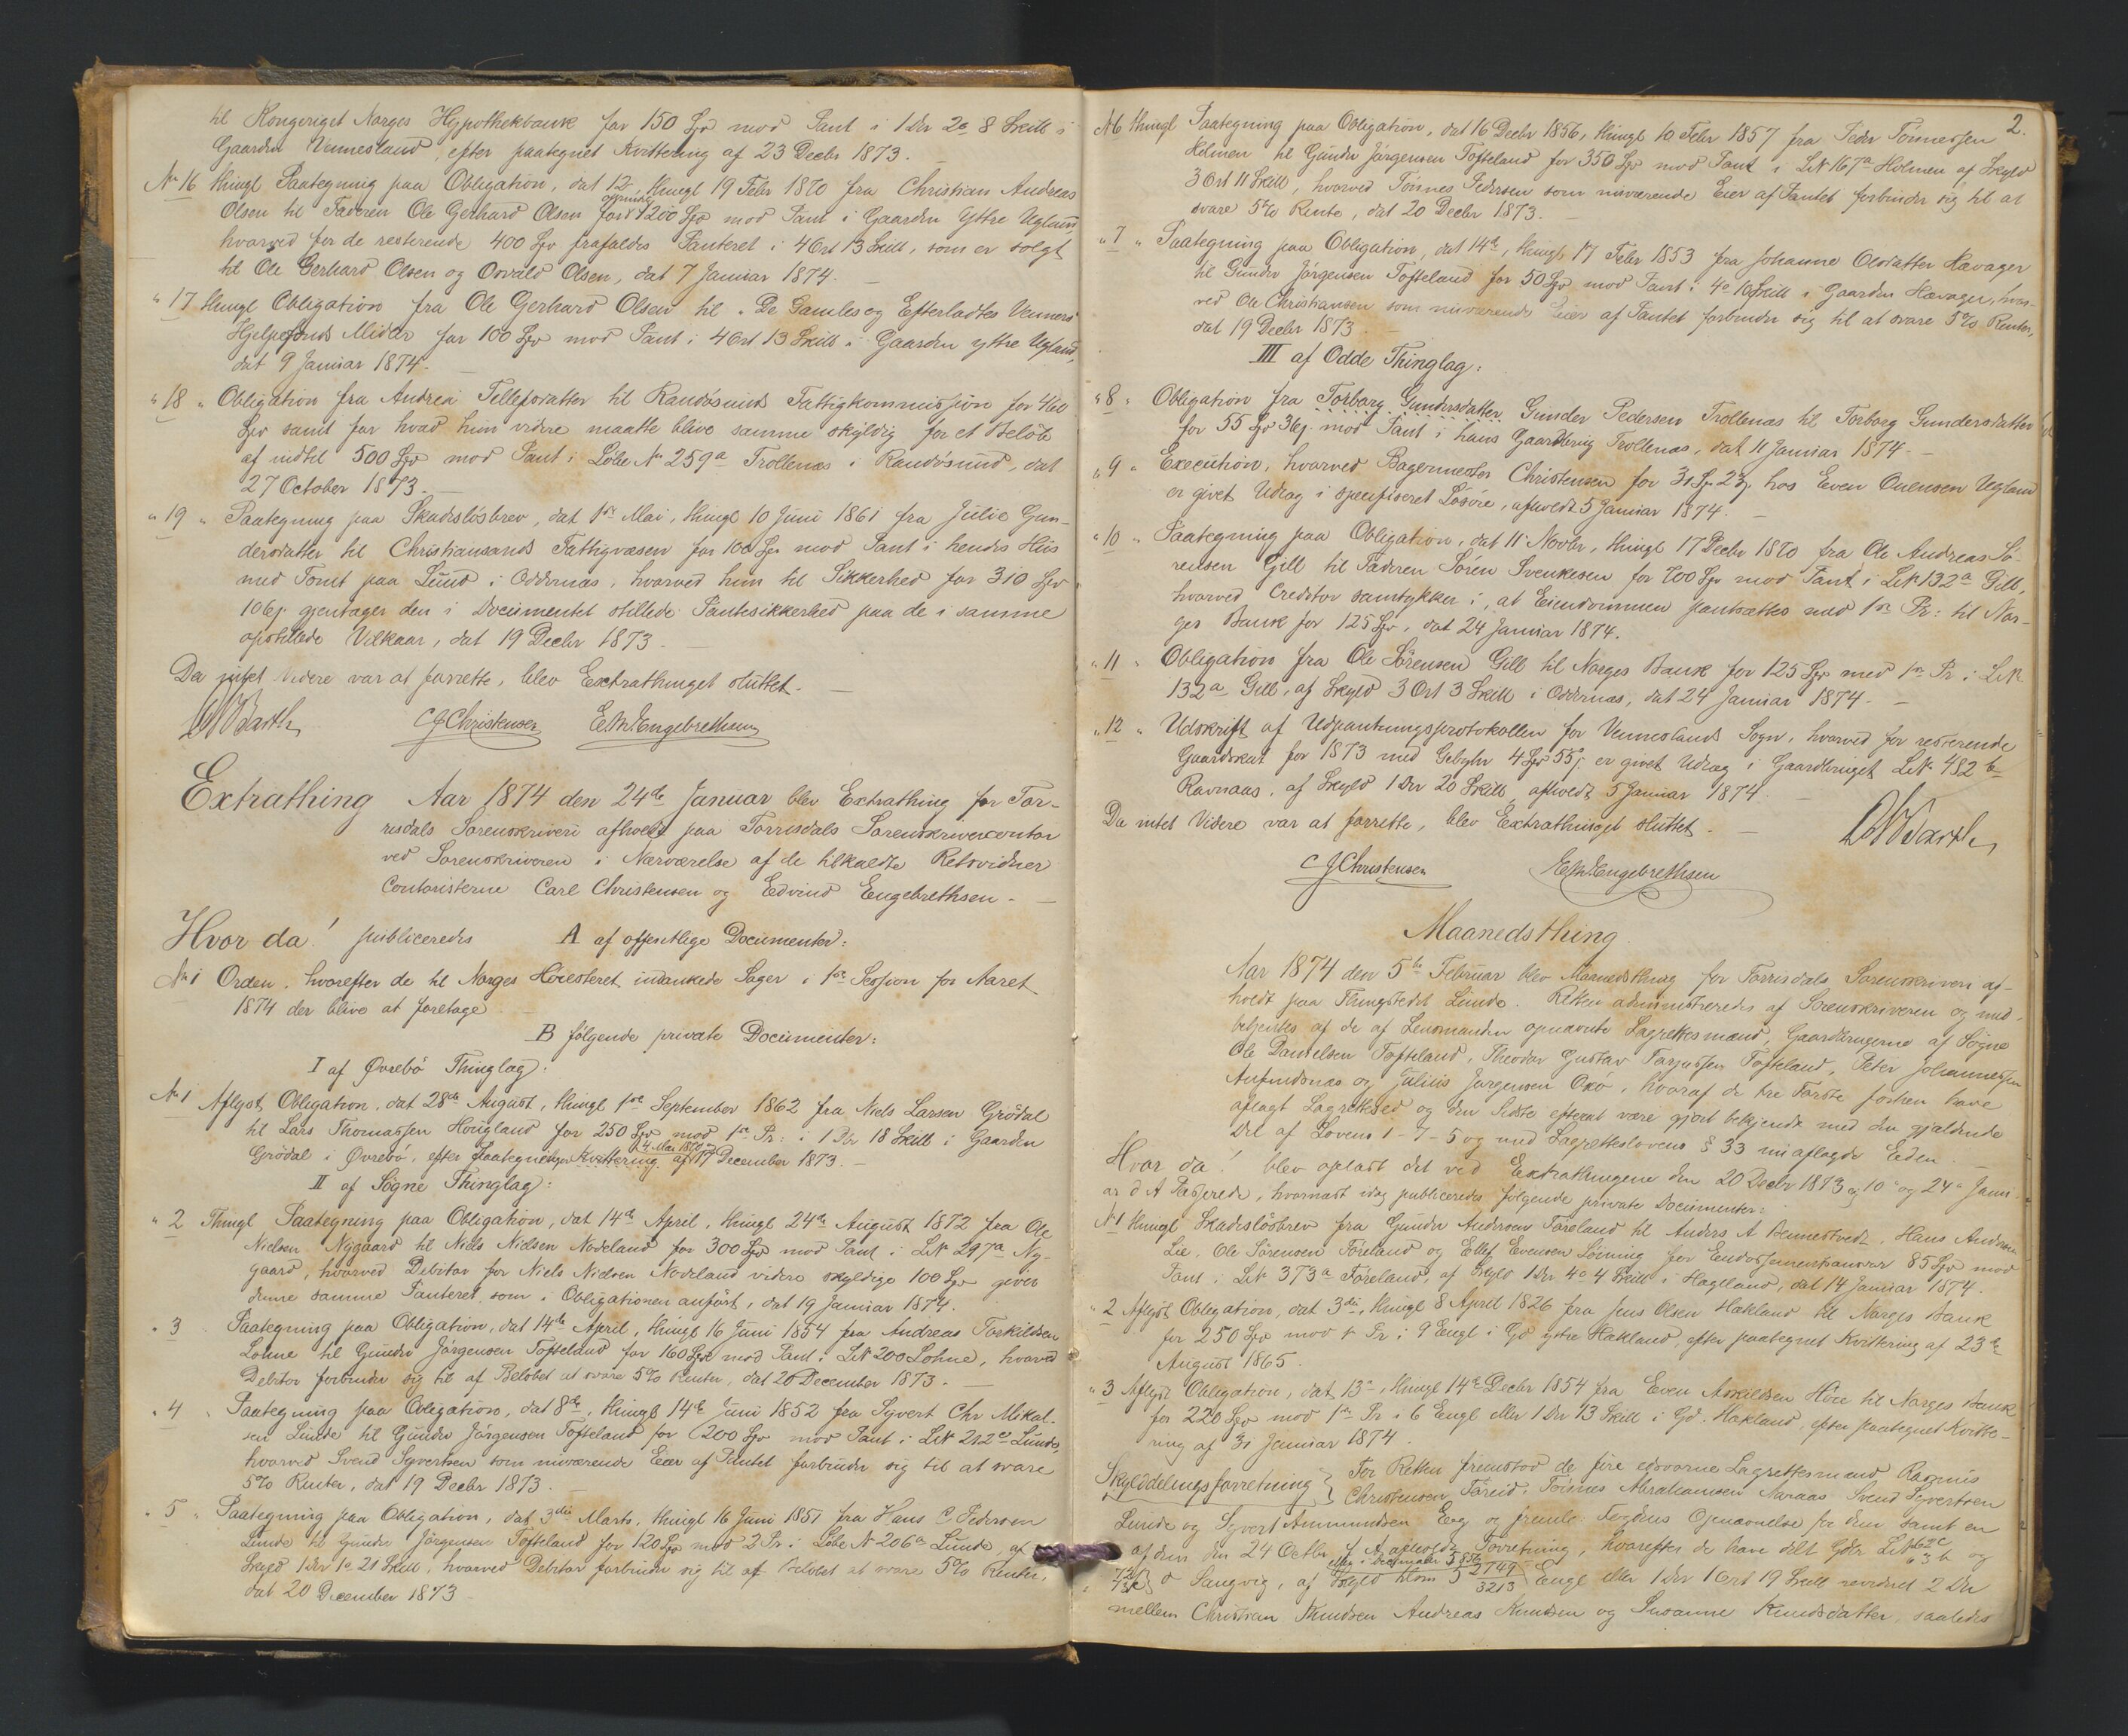 til Kongeriget Norges Hypothekbank for 150 Spd mod Pant i 1 Dlr 2 o 8 Skill i
Gaarden Vennesland, efter paategnet Kvittering af 23 Decbr 1873.
No 16 thingl Paategning paa Obligation, dat 12, thingl 19 Febr 1870 fra Christian Andreas
Olsen til Faderen Ole Gerhard Olsen for 1200 Spd mod Pant i Gaarden Yttre Ugland,
hvorved for de resterende 400 Spd frafaldes Panteret i 4 Ort 13 Skill, som er solgt
til Ole Gerhard Olsen og Osvald Olsen, dat 7 Januar 1874.
" 17 thingl Obligation fra Ole Gerhard Olsen til "De Gamles og Efterladtes Venners"
Hjelpefonds Midler for 100 Spd mod Pant i 4 Ort 13 Skill i Gaarden yttre Ugland,
dat 9 Januar 1874.
" 18 " Obligation fra Andrea Tellefsdatter til Randøsunds Fattigkommission for 460
Spd samt for hvad hun videre maatte blive samme skyldig for et Beløb
af indtil 500 Spd mod Pant i Løbe No 259a Trollenæs i Randøsund, dat
27 October 1873.
" 19 " Paategning paa Skadesløsbrev, dat 1ste Mai, thingl 10 Juni 1861 fra Julie Gun-
dersdatter til Christiansands Fattigvæsen for 100 Spd mod Pant i hendes Huus
med Tomt paa Lund i Oddernæs, hvorved hun til Sikkerhed for 310 Spd
106 s. gjentager den i Documentet stillede Pantesikkerhed paa de i samme
opstillede Vilkaar, dat 19 Decbr 1873.
Da intet Videre var at forrette, blev Extrathinget sluttet.
Barth CJChristensen Engebrethsen
Extrathing Aar 1874 den 24de Januar blev Extrathing for Tor-
risdals Sorenskriveri afholdt paa Torrisdals Sorenskrivercontor
ved Sorenskriveren i Nærværelse af de tilkaldte Retsvidner
Contoristerne Carl Christensen og Edvind Engebrethsen.
Hvor da! publiceredes A af offentlige Documenter:
No 1 Orden, hvorefter de til Norges Høiesteret indankede Sager i 1ste Session for Aaret
1874 der blive at foretage
B følgende private Documenter:
I af Øvrebø Thinglag:
No 1 Aflyst Obligation, dat 28de August, thingl 1ste September 1862 fra Niels Larsen Grødal
til Lars Thomassen Hougland for 250 Spd mod 1ste Pr: i 1 Dlr 18 Skill i Gaarden
Grødal i Øvrebø, efter paategnet Kvittering af 4 Mai 1870 17 December 1873.
II af Søgne Thinglag:
" 2 Thingl Paategning paa Obligation, dat 14de April, thingl 24de August 1872 fra Ole
Nielsen Nygaard til Niels Nielsen Nodeland for 300 Spd mod Pant i LN 297a Ny-
gaard, hvorved Debitor for Niels Nielsen Nodeland videre skyldige 100 Spd giver
denne samme Panteret som i Obligationen anført, dat 19 Januar 1874.
" 3 Paategning paa Obligation, dat 14de April, thingl 16 Juni 1854 fra Andreas Torkildsen
Lohne til Gunder Jørgensen Tofteland for 160 Spd mod Pant i LN 200 Lohne, hvorved
Debitor forbinder sig til af Beløbet at svare 5% Renter, dat 20 December 1873.
" 4 " Paategning paa Obligation, dat 8de, thingl 14de Juni 1852 fra Syvert Chr Mikal-
sen Lunde til Gunder Jørgensen Tofteland for 200 Spd mod Pant i LN 212c Lunde,
hvorved Svend Syvertsen som nuværende Eier af Pantet forbinder sig til at svare
5% Renter, dat 19 Decbr 1873.
" 5 " Paategning paa Obligation, dat 3die Marts, thingl 16 Juni 1851 fra Hans C Pedersen
Lunde til Gunder Jørgensen Tofteland for 120 Spd mod 2 Pr i Løbe N 206a Lunde, af
Skyld 1 Dlr 1 o 21 Skill, hvorved Debitor forbinder sig til af Beløbet at svare 5% Renter,
dat 20 December 1873
2.
N 6 thingl Paategning paa Obligation, dat 16 Decbr 1856, thingl 10 Febr 1857 fra Peder Tønnessen
Holmen til Gunder Jørgensen Tofteland for 350 Spd mod Pant i LN 167a Holmen af Skyld
3 Ort 11 Skill, hvorved Tønnes Pedersen som nuværende Eier af Pantet forbinder sig til at
svare 5% Rente, dat 20 Decbr 1873.
" 7 " Paategning paa Obligation, dat 14de, thingl 17 Febr 1853 fra Johanne Olsdatter Havager
til Gunder Jørgensen Tofteland for 50 Spd mod Pant i 4 o 10 Skill i Gaarden Havager, hvor-
ved Ole Christiansen som nuværende Eier af Pantet forbinder sig til at svare 5% Renter,
dat 19 Decbr 1873.
III af Odde Thinglag:
" 8 " Obligation fra Torborg Gundersdatter Gunder Pedersen Trollenæs til Torborg Gundersdatter
for 55 Spd 36 s. mod Pant i hans Gaardbrug Trollenæs, dat 11 Januar 1874.
" 9 " Execution, hvorved Bagermester Christensen for 31 Sp. 23 s. hos Even Ouensen Ugland
er givet Udlæg i specificeret Løsøre, afholdt 5 Januar 1874.
" 10 " Paategning paa Obligation, dat 11 Novbr, thingl 17 Decbr 1870 fra Ole Andreas Sø-
rensen Gill til Faderen Søren Svenkesen for 700 Spd mod Pant i LN 132a Gill,
hvorved Creditor samtykker i, at Eiendommen pantsættes med 1ste Pr: til Nor-
ges Bank for 125 Spd, dat 24 Januar 1874.
" 11 " Obligation fra Ole Sørensen Gill til Norges Bank for 125 Spd med 1ste Pr i LN
132a Gill, af Skyld 3 Ort 3 Skill i Oddernæs, dat 24 Januar 1874.
" 12 " Udskrift af Udpantningsprotokollen for Venneslands Sogn, hvorved for resterende
Gaardskat for 1873 med Gebyhr 4 Spd 55 s. er givet Udlæg i Gaardbruget LN 482b
Ravnaas, af Skyld 1 Dlr 20 Skill, afholdt 5 Januar 1874.
Da intet Videre var at forrette, blev Extrathinget sluttet.
Barth
CJChristensen Engebrethsen
Maanedsthing
Aar 1874 den 5te Februar blev Maanedsthing for Torrisdals Sorenskriveri af-
holdt paa Thingstedet Lunde. Retten administreredes af Sorenskriveren og med-
betjentes af de af Lensmanden opnævnte Lagrettesmænd, Gaardbrugerne af Søgne
Ole Danielsen Tofteland, Theodor Gustav Tarjussen Tofteland, Peter Johannessen
Amfindsnæs og Julius Jørgensen Oxø, hvoraf de tre Første forhen have
aflagt Lagretteseed og den Sidste efterat være gjort bekjendt med den gjældende
Del af Lovens 1-7-5 og med Lagretteslovens § 33 nu aflagde Eden
Hvor da! blev oplæst det ved Extrathingene den 20 Decbr 1873 og 10de og 24de Janu-
ar d A Passerede, hvornæst idag publiceredes følgende private Documenter:
N 1 thingl Skadesløsbrev fra Gunder Andersen Føreland til Anders A Bennestvedt, Hans Andersen
Lie, Ole Sørensen Føreland og Ellef Evensen Løining for Endossementsansvar 85 Spd mod
Pant i LN 373a Føreland, af Skyld 1 Dlr 4 o 4 Skill i Hægeland, dat 14 Januar 1874.
" 2 Aflyst Obligation, dat 3die, thingl 8 April 1826 fra Jens Olsen Hakland til Norges Bank
for 250 Spd mod 1 Pr i 9 Engl i Gd ytre Hakland, efter paategnet Kvittering af 23de
August 1865.
" 3 Aflyst Obligation, dat 13de, thingl 14de Decbr 1854 fra Even Askildsen Høie til Norges Bank
for 220 Spd mod 1ste Pr i 6 Engl eller 1 Dlr 13 Skill i Gd. Hakland, efter paategnet Kvitte-
ring af 31 Januar 1874.
Skylddelingsforretning } For Retten fremstod de fire edsvorne Lagrettesmend Rasmus
Christensen Føreid, Tønnes Abrahamsen Naraas Svend Syvertsen
Lunde og Syvert Ammundsen Eeg og fremla: Fogdens Opnævnelse for dem samt en
af dem den 24 Octbr f A afholdt Forretning, hvorefter de have delt Gdbr LN 62c 63b og
Langvig, af Skyld tils 5 2749/3213 Engl eller 1 Dlr 1 Ort 19 Skill revideret 2 Dlr
mellem Christian Knudsen Andreas Knudsen og Susanne Knudsdatter, saaledes